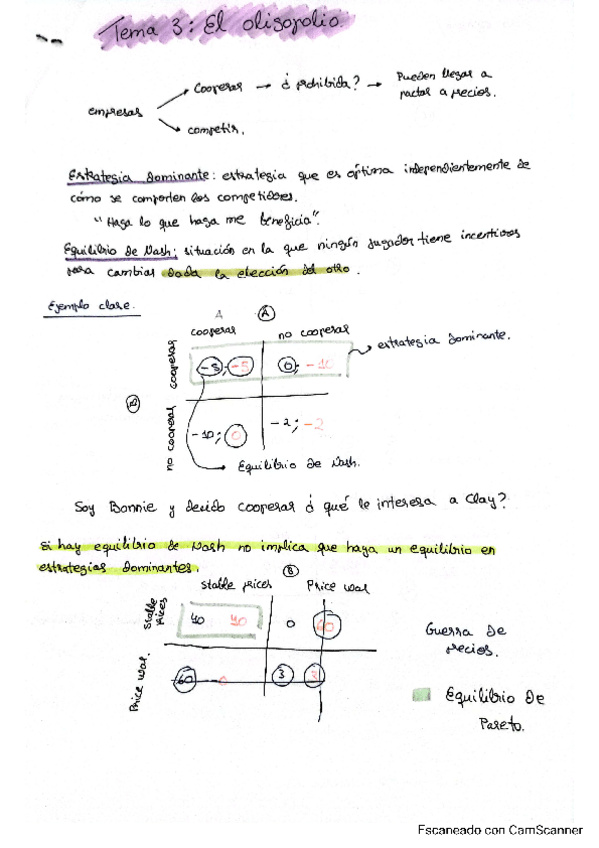 Tema 3: El oligopolio
empresas
Cooperar → ¿prohibida? → Pueden llegar a
pactar a precios.
competir.
Estrategia dominante: estrategia que es óptima independientemente de
cómo se comporten los competidores.
"Haga lo que haga me beneficia".
Equilibrio de Nash: situación en la que ningún jugador tiene incentivos
para cambiar dada la elección del otro.
Ejemplo clase.
A A
cooperar no cooperar
cooperar -5; -5 0; -10 estrategia dominante.
no cooperar -10; 0 -2; -2
Equilibrio de Nash.
Soy Bonnie y decido cooperar ¿qué le interesa a Clay?
Si hay equilibrio de Nash no implica que haya un equilibrio en
estrategias dominantes.
B
stable prices Price war
stable prices 40 40 0 60
Price war. 60 0 3 3
Guerra de
precios.
Equilibrio de
Pareto.
Escaneado con CamScanner